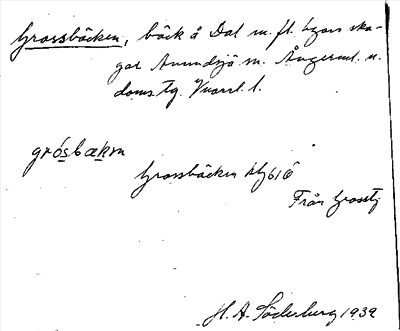 Grossbäcken, bäck å Dal m. fl. byars sko-
gar Anundsjö sn. Ångerml. n.
doms. tg. Vnorrl. l.
grósbækɛn
Grossbäcken
Från Grosstj
H. A. Söderberg 1939